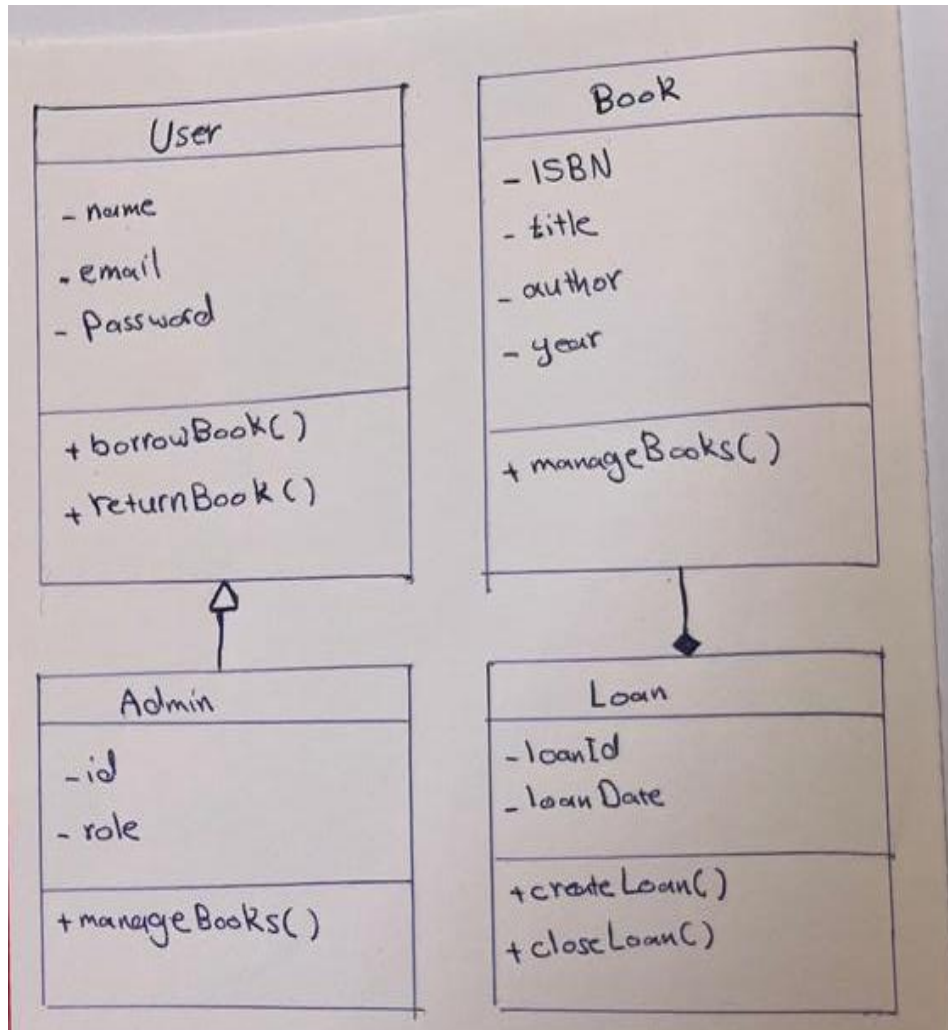 User
- name
- email
- Password
+ borrowBook()
+ returnBook()
Book
- ISBN
- title
- author
- year
+ manageBooks()
Admin
- id
- role
+ manageBooks()
Loan
- loanId
- loanDate
+ createLoan()
+ closeLoan()